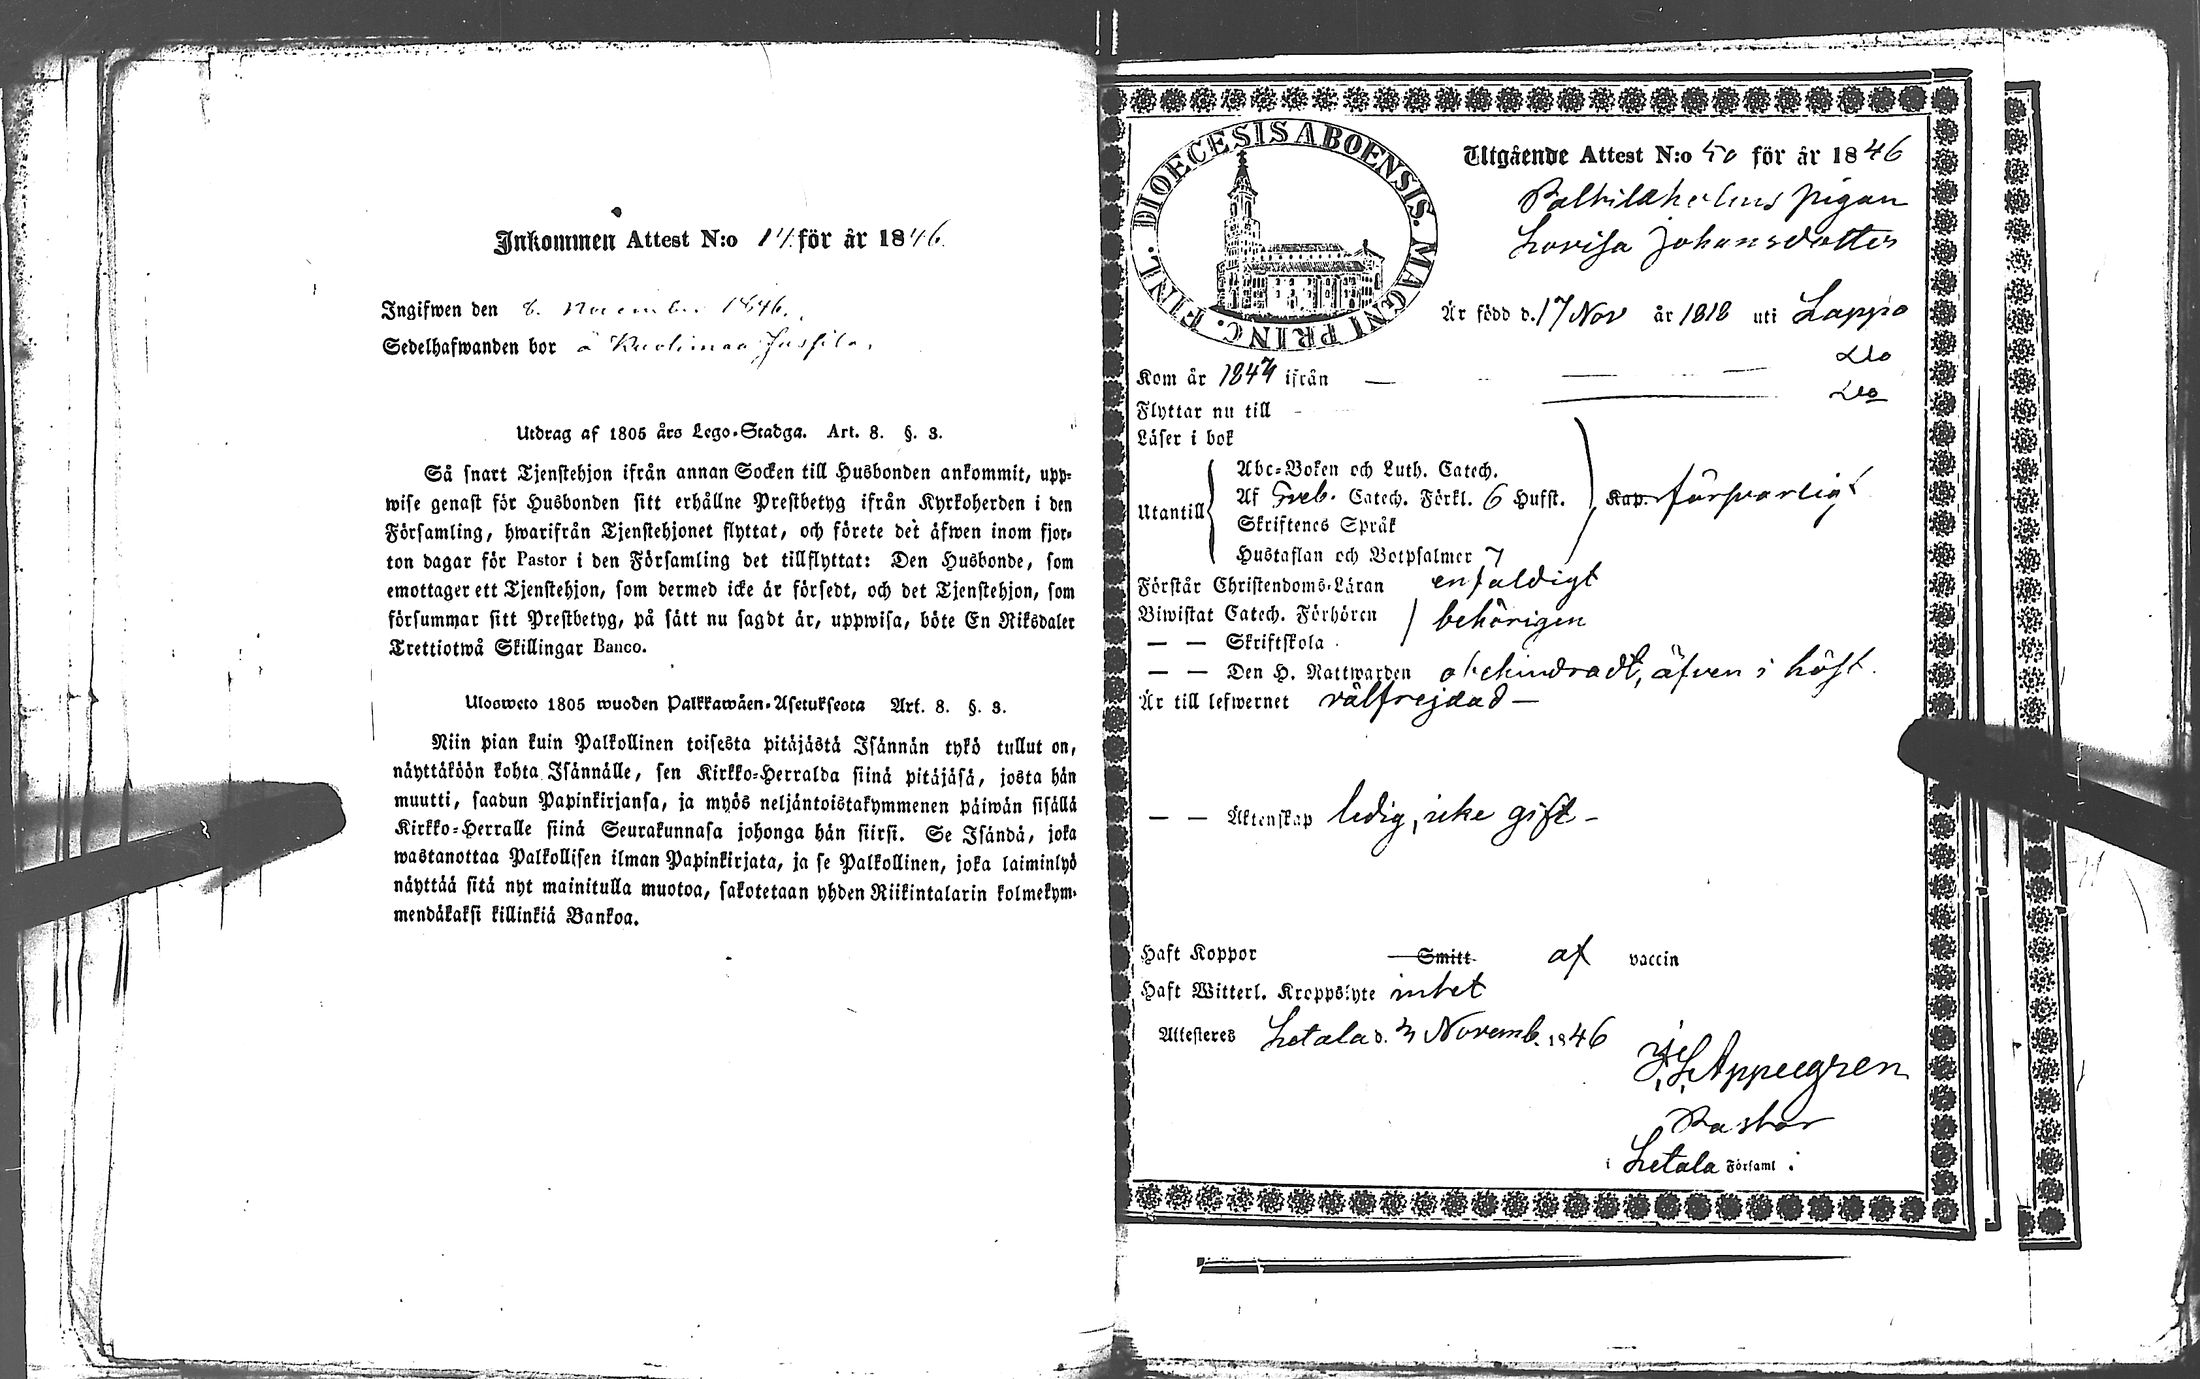 Inkommen Attest N:o 14. för år 1846.
Ingifwen den 8. November 1846.
Sedelhafwanden bor å Kuolimaa Jussila.
Utdrag af 1805 års Lego-Stadga. Art. 8. §. 3.
Så snart Tjenstehjon ifrån annan Socken till Husbonden ankommit, upp-
wise genast för Husbonden sitt erhållne Prestbetyg ifrån Kyrkoherden i den
Församling, hwarifrån Tjenstehjonet flyttat, och förete det äfwen inom fjor-
ton dagar för Pastor i den Församling det tillflyttat: Den Husbonde, som
emottager ett Tjenstehjon, som dermed icke är försedt, och det Tjenstehjon, som
försummar sitt Prestbetyg, på sätt nu sagdt är, uppwisa, böte En Riksdaler
Trettiotwå Skillingar Banco.
Ulosweto 1805 wuoden Palkkawäen-Asetuksesta Art. 8. §. 3.
Niin pian kuin Palkollinen toisesta pitäjästä Isännän tykö tullut on,
näyttäköön kohta Isännälle, sen Kirkko-Herralda siinä pitäjäsä, josta hän
muutti, saadun Papinkirjansa, ja myös neljäntoistakymmenen päiwän sisällä
Kirkko-Herralle siinä Seurakunnasa johonga hän siirsi. Se Isändä, joka
wastanottaa Palkollisen ilman Papinkirjata, ja se Palkollinen, joka laiminlyö
näyttää sitä nyt mainitulla muotoa, sakotetaan yhden Riikintalarin kolmekym-
mendäkaksi killinkiä Bankoa.
DIOECESIS ABOENSIS. MAGNI PRINC. FINL.
Utgående Attest N:o 50 för år 1846
pigan
Lovisa Johansdotter
Är född d. 17 Nov år 1818 uti Lappo
Kom år 1844 ifrån — — — Do
Flyttar nu till — Do
Läser i bok
Utantill
Abc-Boken och Luth. Catech.
Af Sveb. Catech. Förkl. 6 Hufst.
Skriftenes Språk
Hustaflan och Botpsalmer 7
Kap. försvarligt
Förstår Christendoms-Läran enfaldigt
Biwistat Catech. Förhören behörigen
— — Skriftskola
— — Den H. Nattwarden obehindradt, äfven i höst.
Är till lefwernet välfrejdad —
— — Äktenskap ledig, icke gift —
Haft Koppor Smitt af vaccin
Haft Witterl. Kroppslyte intet
Attesteres Letala d. 3 Novemb. 1846
Appelgren
Pastor
i Letala Församl: